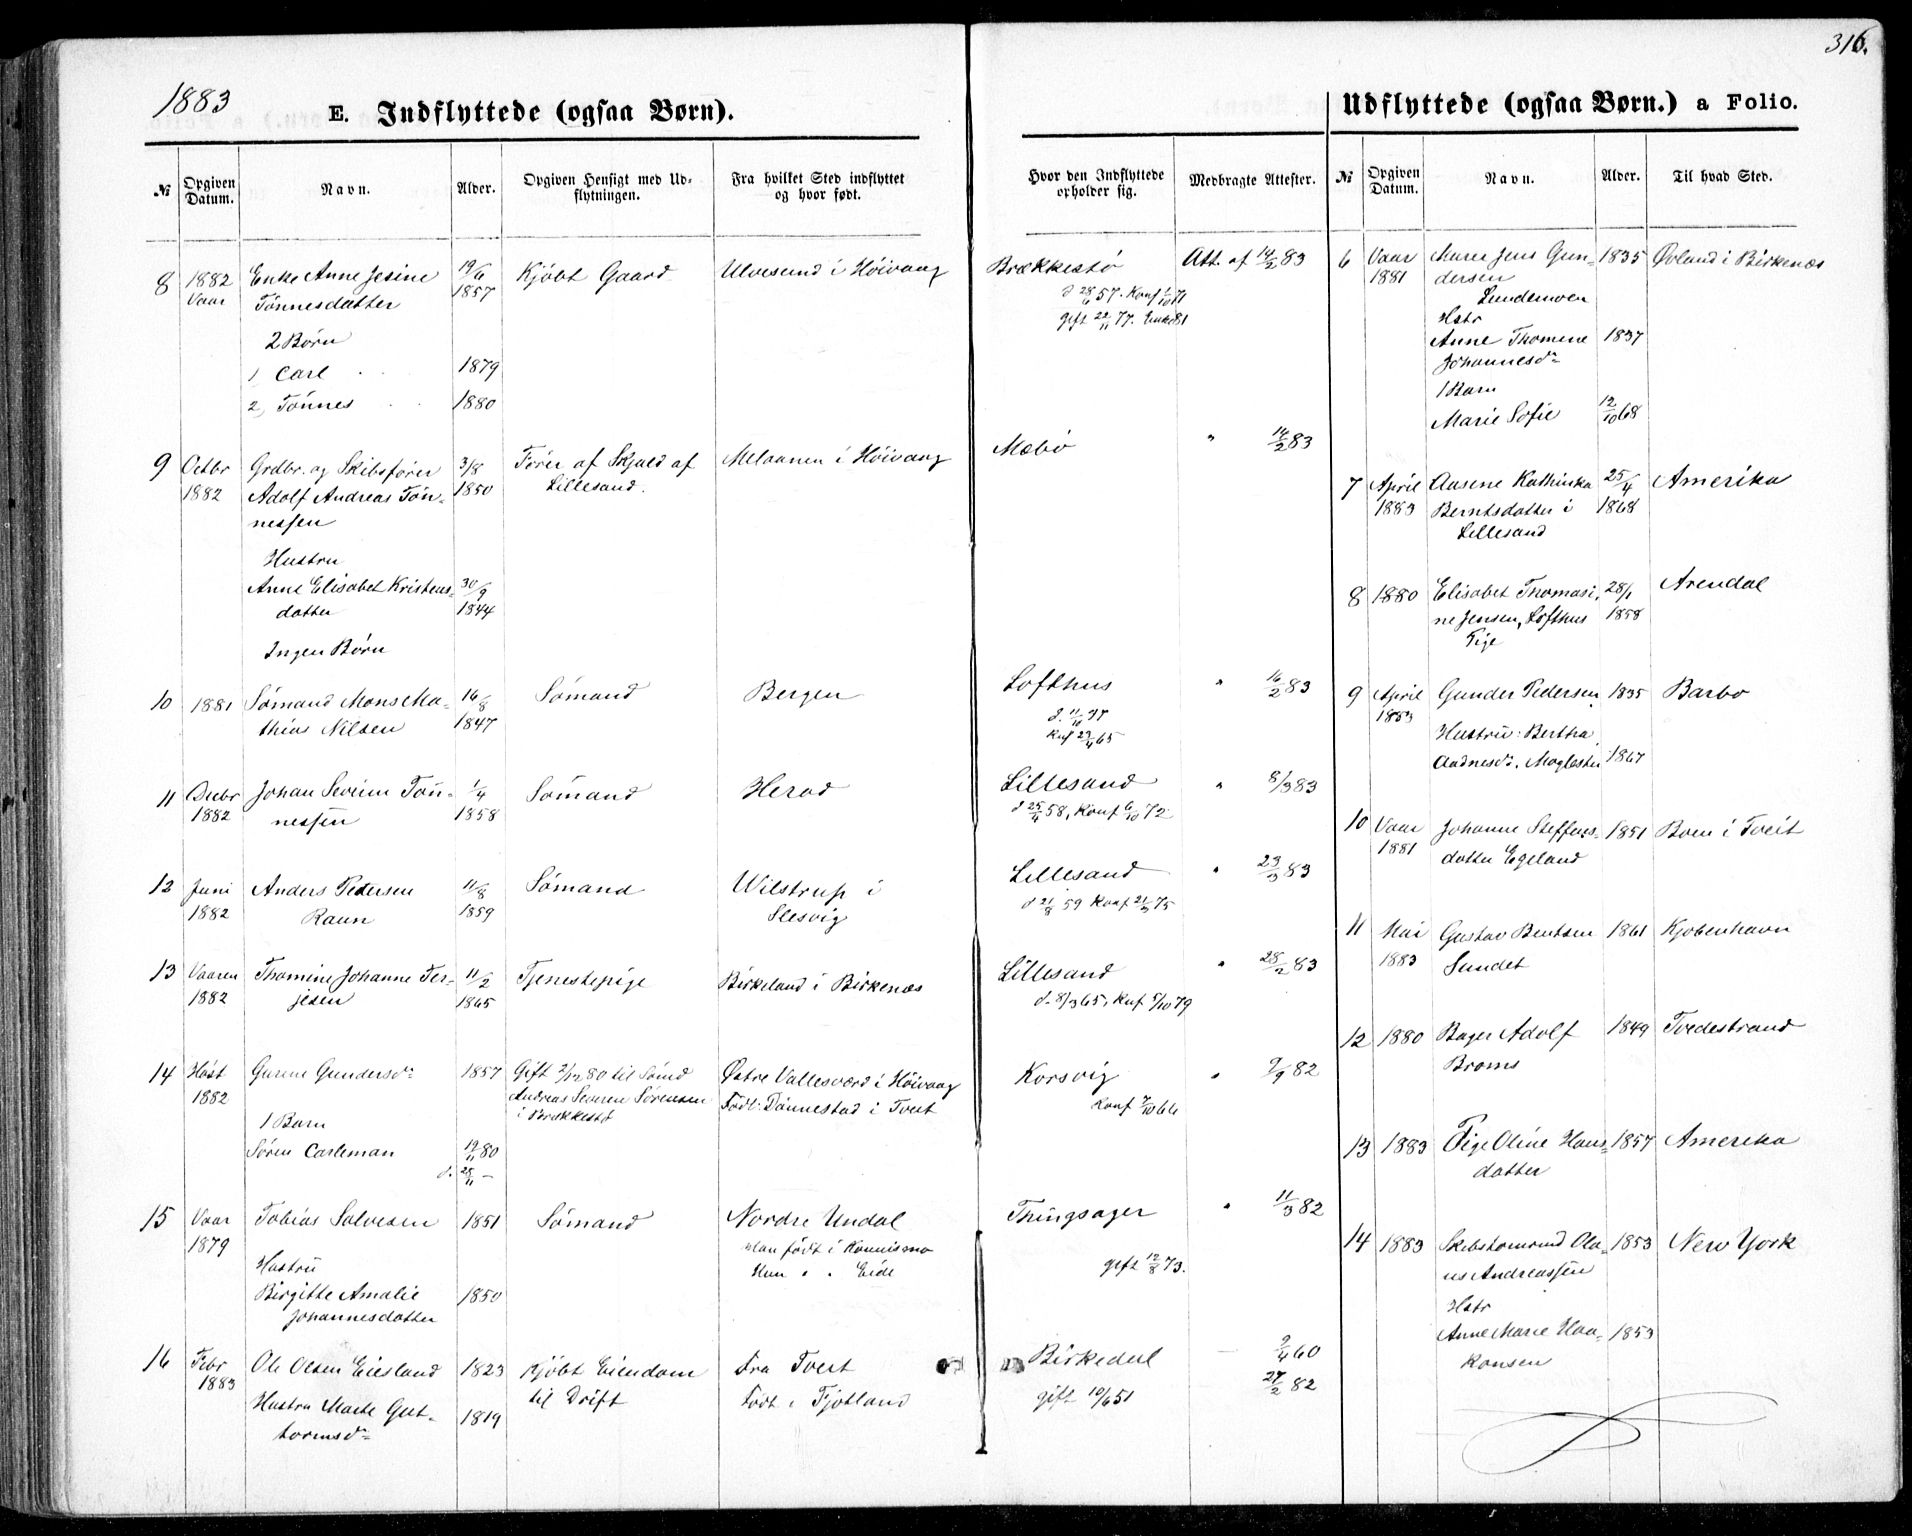 316.
1883
E. Indflyttede (ogsaa Børn).
№
Opgiven Datum.
Navn.
Alder.
Opgiven Hensigt med Udflytningen.
Fra hvilket Sted indflyttet og hvor født.
Hvor den Indflyttede opholder sig.
Medbragte Attester.
8 1882 Enke Anne Jesine 19/6 Kjøbt Gaard Ulvesund i Høivaag Brækkestø Att. af 14/2 83
Vaar Tønnesdatter 1857 d 28/6 57. Konf 1/10 71
gift 22/11 77. Enke 81
2 Børn
1, Carl 1879
2, Tønnes 1880
9 Octbr Grdbr. og Skibsfører 3/8 Fører af Skjold af Melaanen i Høivaag Mæbø " 14/2 83
1882 Adolf Andreas Tøn- 1850 Lillesand.
nessen
Hustru
Anne Elisabet Kristens- 30/9
datter 1844
Ingen Børn
10 1881 Sømand Mons Ma- 16/8 Sømand Bergen Lofthus " 16/2 83
thias Nilsen 1847 d. 11/10 47
Knf 23/4 65
11 Decbr Johan Severin Tøn- 1/4 Sømand Herad Lillesand " 8/3 83
1882 nessen 1858 d 25/4 58, Konf 6/10 72
12 Juni Anders Pedersen 11/8 Sømand Wilstrup i Lillesand " 23/3 83
1882 Raun 1859 Slesvig d 21/8 59 Konf 21/3 75
13 Vaaren Thomine Johanne Ter- 11/2 Tjenestepige Birkeland i Birkenæs Lillesand " 28/2 83
1882 jesen 1865 d. 8/3 65, Knf 5/10 79
14 Høst Gurine Gundersd= 1857 Gift 2/12 80 til Sømd Østre Vallesværd i Høivaag Korsvig " 9/9 82
1882 Andreas Severin Sørensen Født: Dønnestad i Tveit Konf 7/10 66
i Brækkestø
1 Barn
Søren Carleman 19/11 80
d. 28/11 —
15 Vaar Tobias Salvesen 1851 Sømand Nordre Undal Thingsager " 11/3 82
1879 Han født i Konnismo
Hustru Hun " " Eide gift 12/8 73.
Birgitte Amalie 1850
Johannesdatter
16 Febr Ole Olsen Eiesland 1823 Kjøbt Eiendom Fra Tveit Birkedal — 9/4 60
1883 til Drift Født i Fjotland gift 10/6 51 27/2 82
Hustru Marte Gut- 1819
tormsd=
Udflyttede (ogsaa Børn.) a Folio.
№
Opgiven Datum.
Navn.
Alder.
Til hvad Sted.
6 Vaar Murer Jens Gun- 1835 Øvland i Birkenæs
1881 dersen
Lundemoen
Hstr
Anne Thomine 1837
Johannesd=
1 Barn
Marie Sofie 12/10 68
7 April Aasene Kathinka 25/4 Amerika
1883 Berntsdatter i 1868
Lillesand
8 1880 Elisabet Thomasi- 28/1 Arendal
ne Jensen, Lofthus 1858
Pige
9 April Gunder Pedersen 1835 Barbo
1883
Hustru: Bertha
Aadnesd=, Moglestu 1867
10 Vaar Johanne Steffens- 1851 Boen i Tveit
1881 datter Egeland
11 Mai Gustav Bentsen 1861 Kjøbenhavn
1883 Sundet
12 1880 Bager Adolf 1849 Tvedestrand
Broms
13 1883 Pige Oline Hans- 1857 Amerika
datter
14 1883 Skibstømmd Ola- 1853 New York
us Andreassen
Hstr
Anne Marie Haa- 1853
konsen